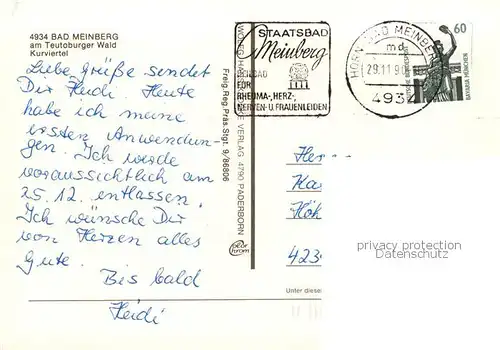 4934 BAD MEINBERG
am Teutoburger Wald
Kurviertel
Liebe Grüße sendet
Dir Heidi. Heute
habe ich meine
ersten Anwendun-
gen. Ich werde
voraussichtlich am
25.12. entlassen.
Ich wünsche Dir
von Herzen alles
Gute.
Bis bald
Heidi
Freig. Reg. Präs. Stgt. 9/86806
VERLAG 4790 PADERBORN
STAATSBAD
Meinberg
FÜR
RHEUMA-, HERZ-,
NERVEN- U. FRAUENLEIDEN
HORN-BAD MEINBERG
md
29.11.90
4934
60
BAVARIA MÜNCHEN
Her
Ka
Höh
423
privacy protection
Datenschutz
Unter diese